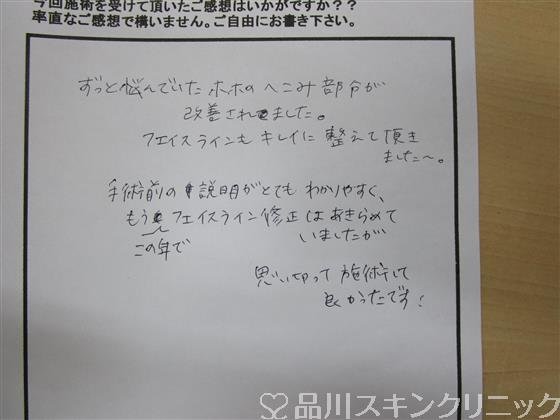 今回施術を受けて頂いたご感想はいかがですか？？
率直なご感想で構いません。ご自由にお書き下さい。
ずっと悩んでいたホホのへこみ部分が
改善されました。
フェイスラインもキレイに整えて頂き
ましたー。
手術前の説明がとてもわかりやすく、
もうフェイスライン修正はあきらめて
この年で
いましたが
思い切って施術して
良かったです！
品川スキンクリニック